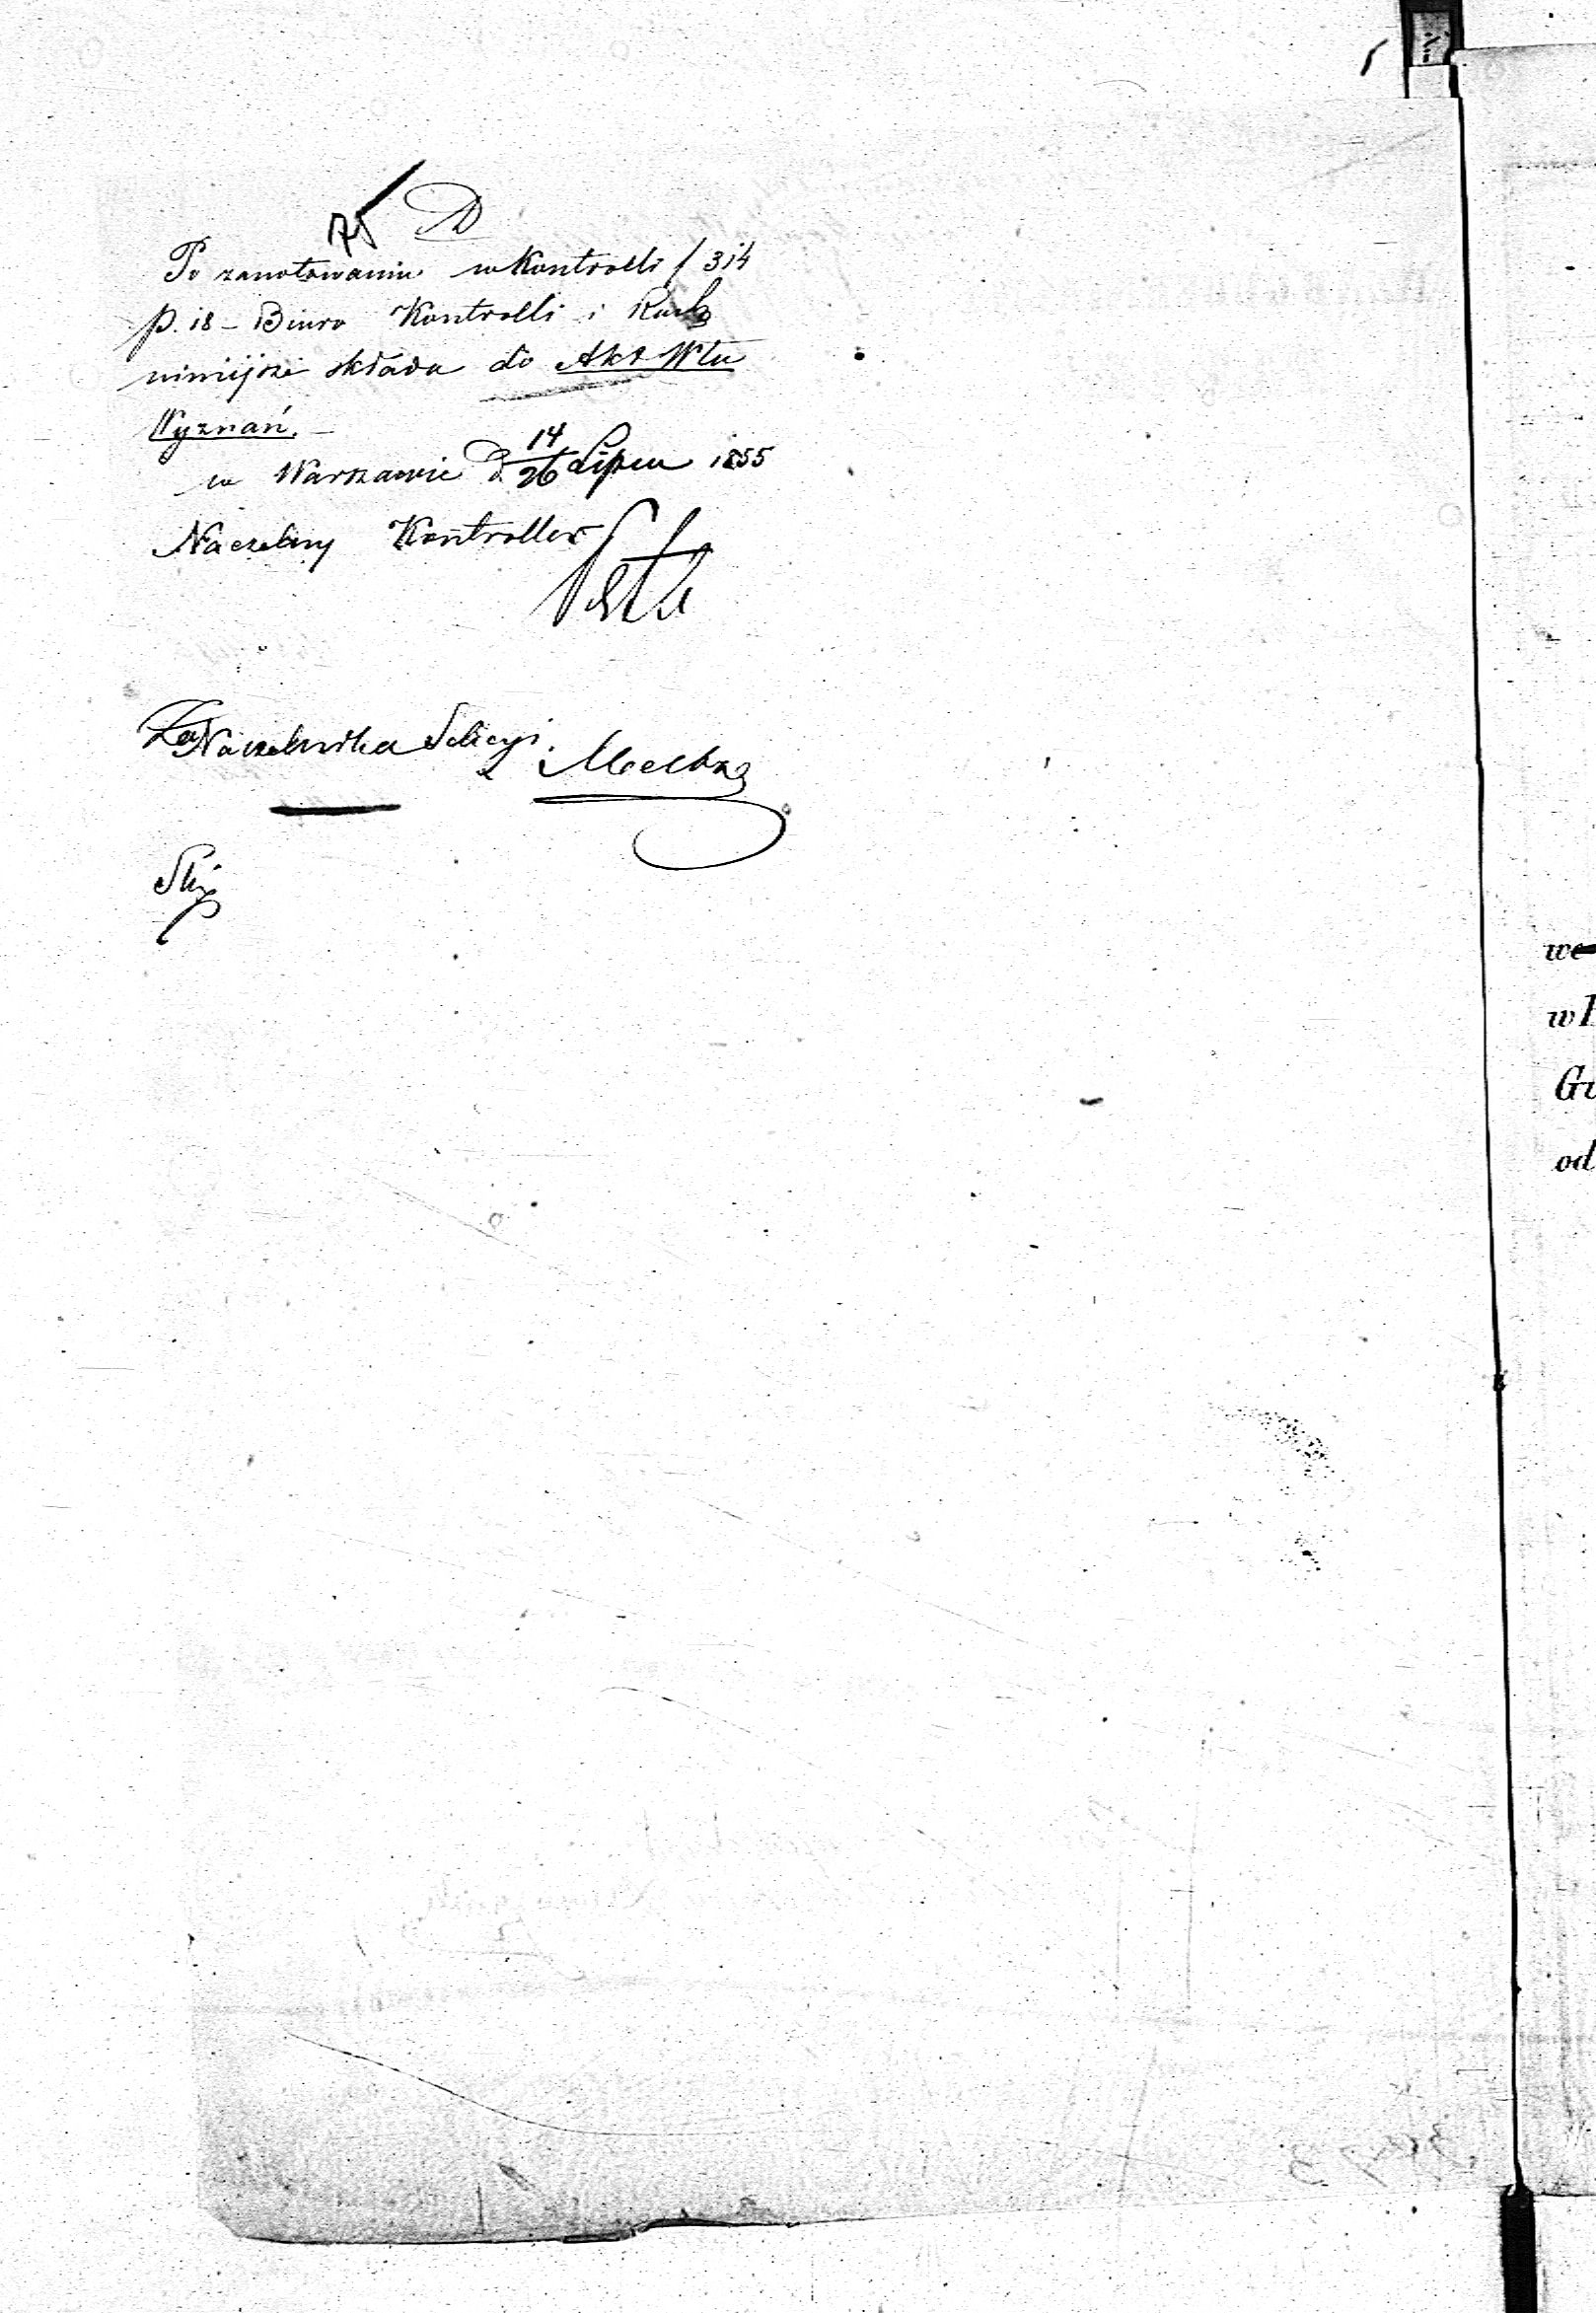 D
Po zanotowaniu w Kontrolli f 314
p. 18 - Biuro Kontrolli i Rach
niniejsze składa do Akt Włu
Wyznań. -
w Warszawie d 14/26 Lipca 1855
Naczelny Kontroller
Za Naczelnika Sekcyi
we
od